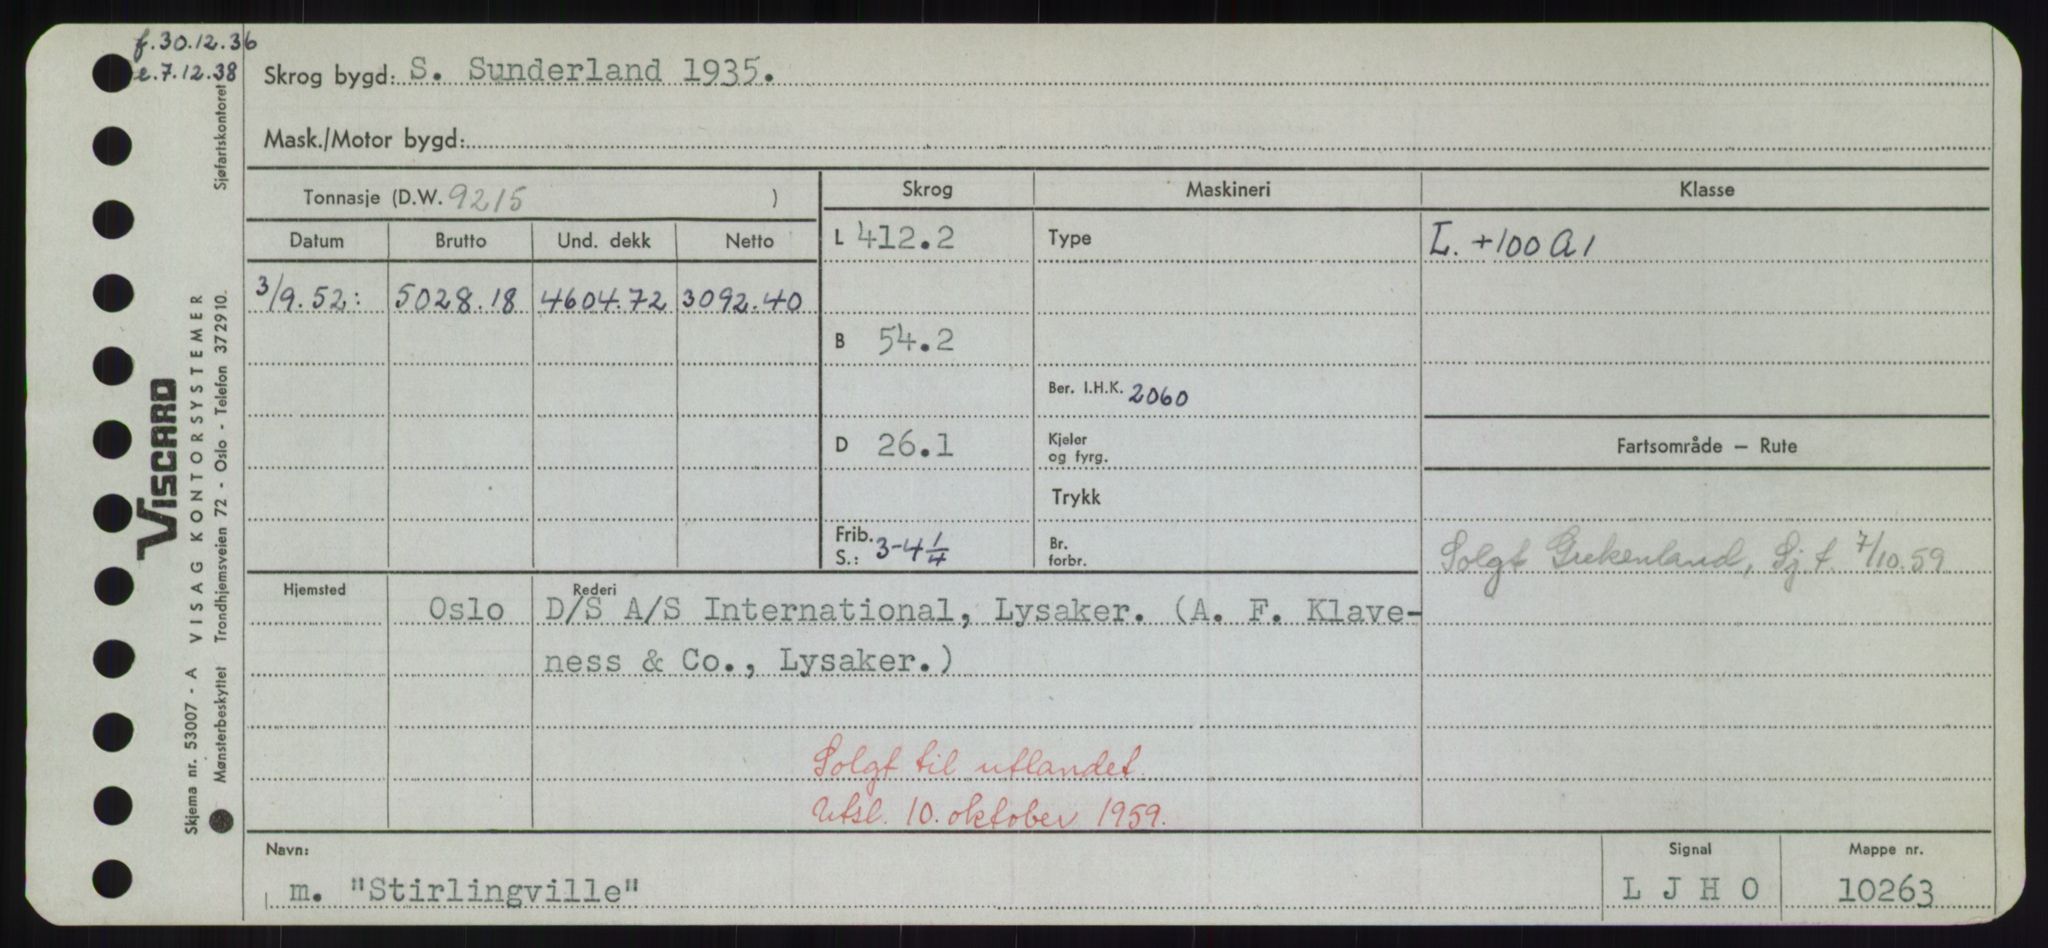 f.30.12.36
e.7.12.38
Skrog bygd: S. Sunderland 1935.
Mask./Motor bygd:
Tonnasje (D.W. 9215 )
Skrog
Maskineri
Klasse
Datum Brutto Und. dekk Netto
L 412.2
Type
L. +100 A 1
3/9.52: 5028.18 4604.72 3092.40
B 54.2
Ber. I.H.K. 2060
D 26.1
Kjeler
og fyrg.
Fartsområde – Rute
Trykk
Frib.
S.: 3-4 1/4
Br.
forbr.
Solgt Grekenland, Sj.t. 7/10.59
Hjemsted
Rederi
Oslo D/S A/S International, Lysaker. (A. F. Klave-
ness & Co., Lysaker.)
Solgt til utlandet.
Utsl. 10. oktober 1959.
Navn:
m. "Stirlingville"
Signal
L J H O
Mappe nr.
10263
VISCARD
Skjema nr. 53007 - A VISAG KONTORSYSTEMER
Mønsterbeskyttet Trondhjemsveien 72 - Oslo - Telefon 372910.
Sjøfartskontoret